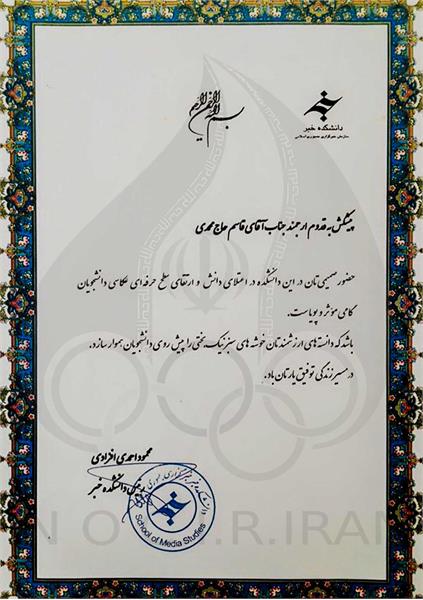 بسم الله الرحمن الرحیم
دانشکده خبر
سازمان خبرگزاری جمهوری اسلامی
پیشکش به قدوم ارجمند جناب آقای قاسم حاج محمدی
حضور صمیمی تان در این دانشکده در اعتلای دانش و ارتقای سطح حرفه ای عکاسی دانشجویان
گامی مؤثر و پویاست.
باشد که دانسته های ارزشمندتان خوشه های سبز نیک بختی را پیش روی دانشجویان هموار سازد.
در مسیر زندگی توفیق یارتان باد.
محمود احمدی افزادی
رییس دانشکده خبر
School of Media Studies
N O C I.R.IRAN